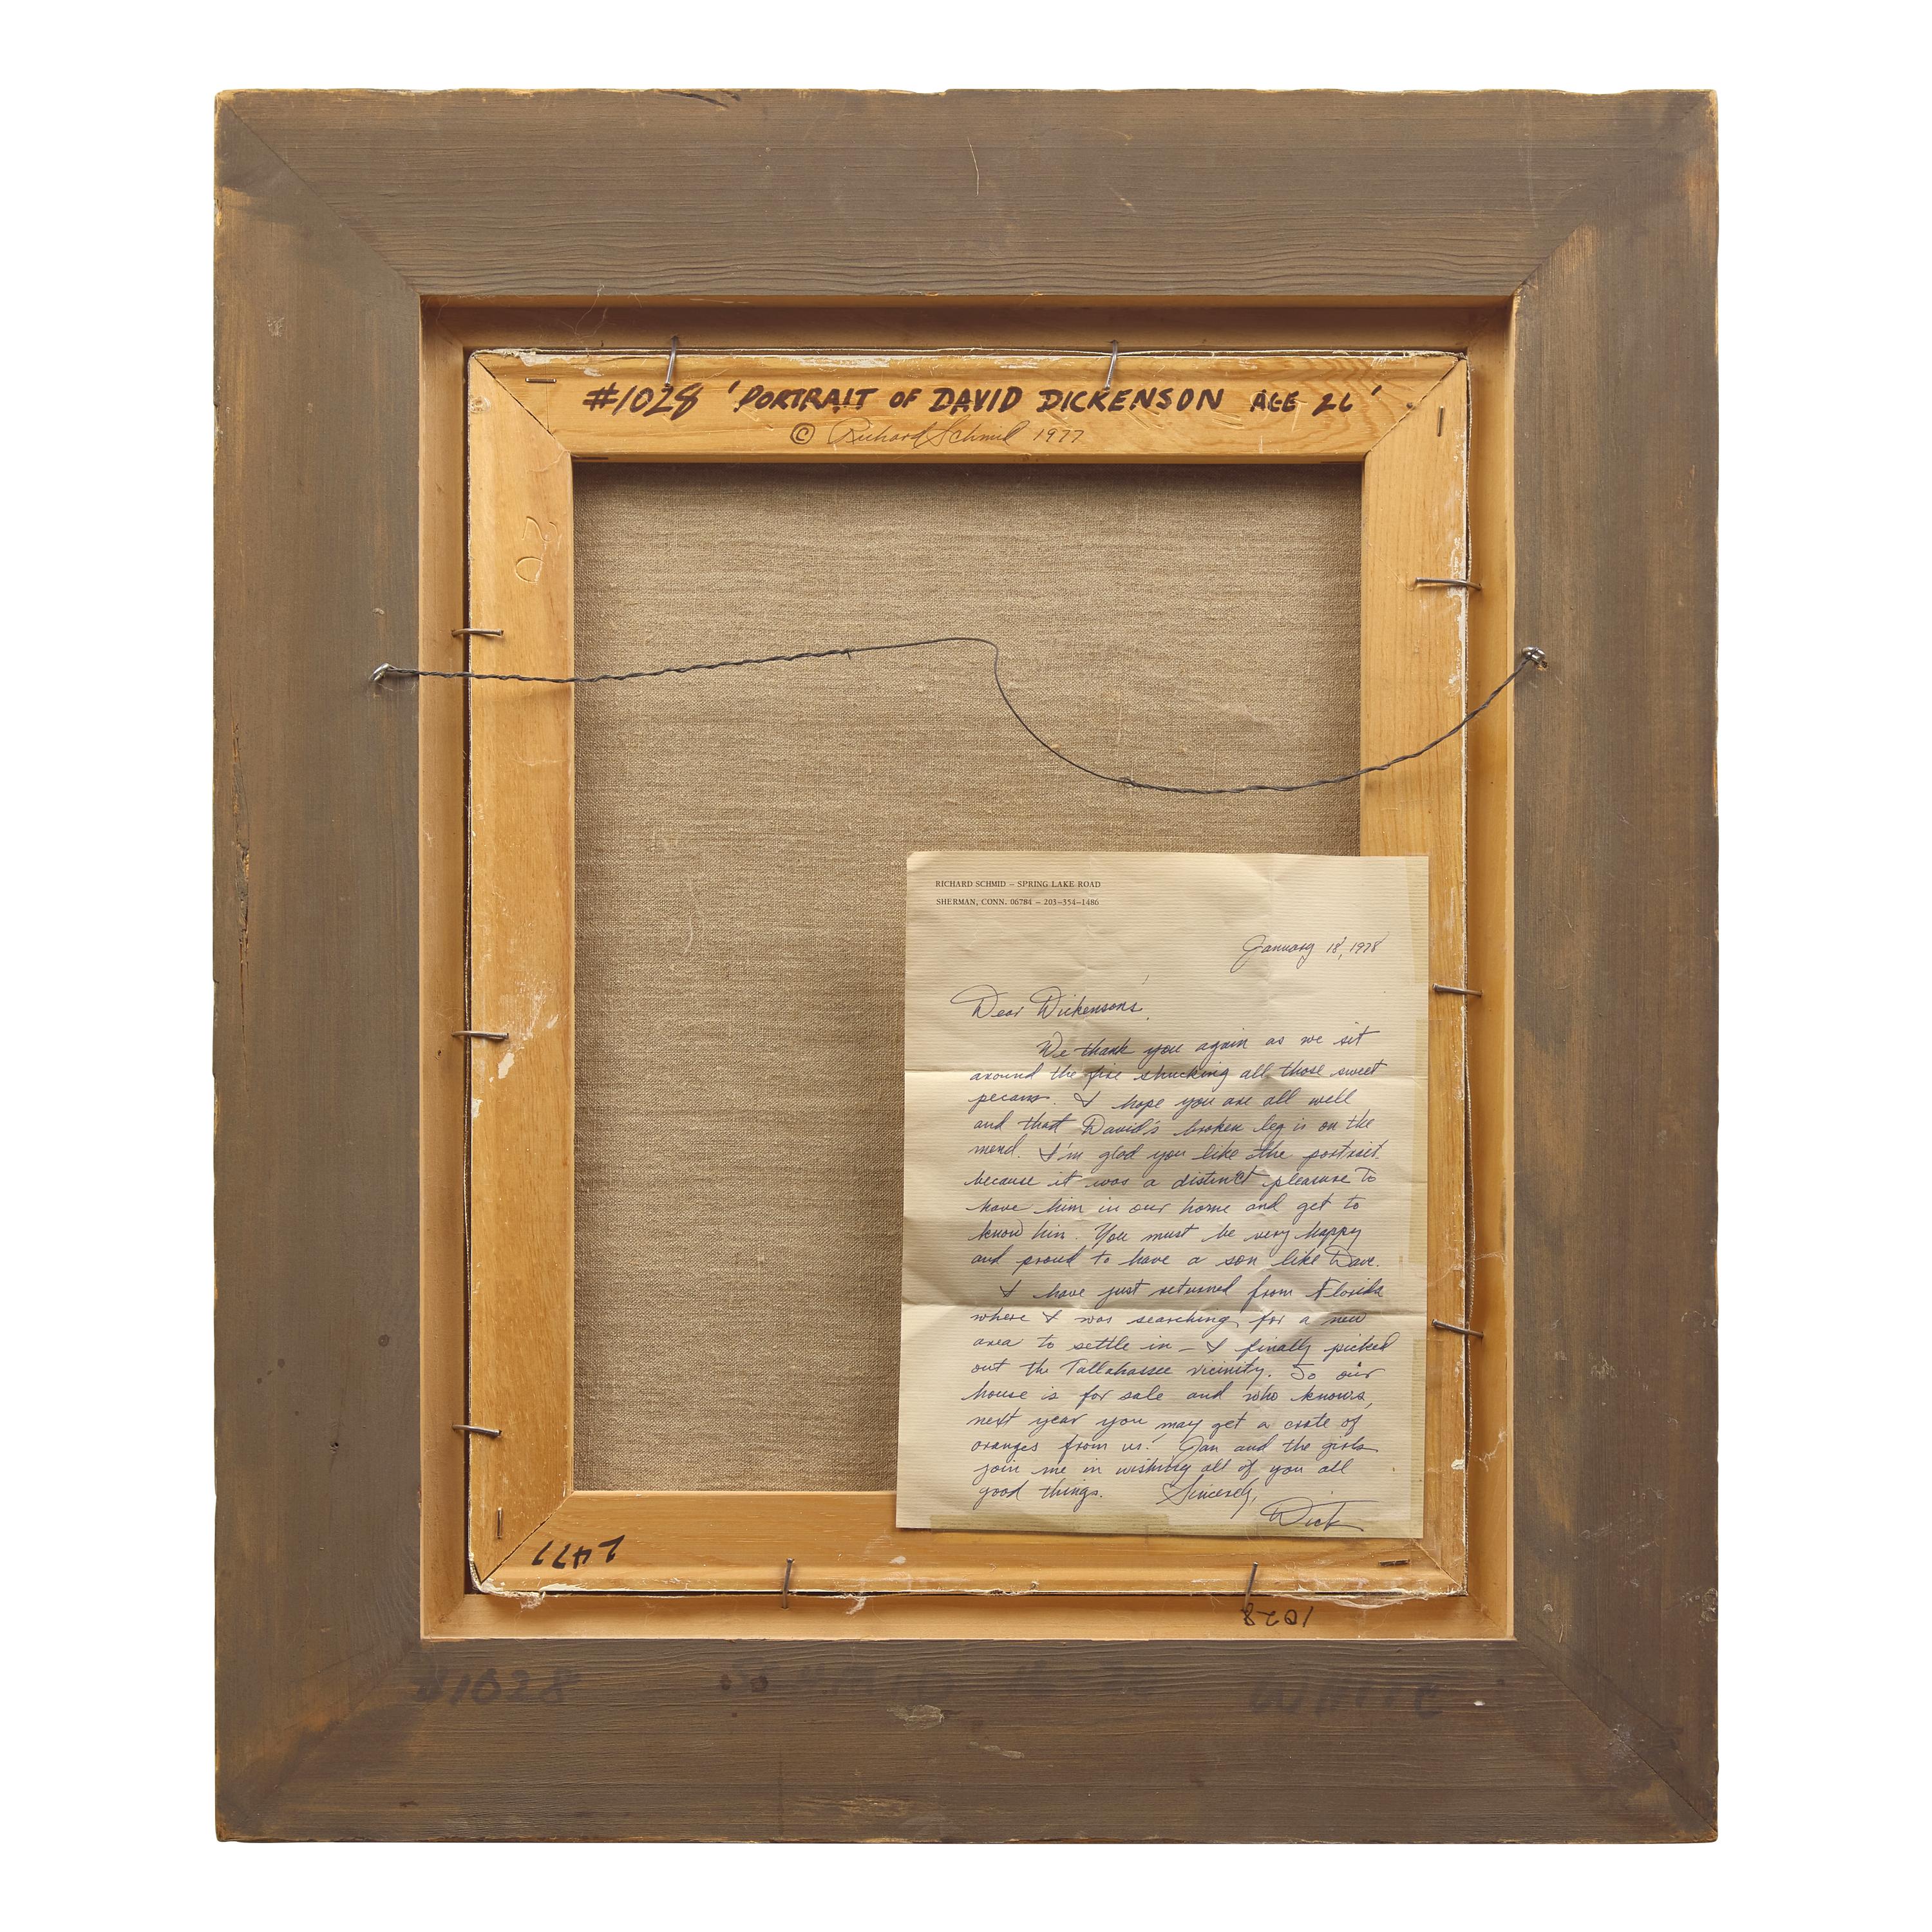 #1028 'PORTRAIT OF DAVID DICKENSON AGE 26'
© Richard Schmid 1977
20
RICHARD SCHMID – SPRING LAKE ROAD
SHERMAN, CONN. 06784 – 203–354–1486
January 18, 1978
Dear Dickensons,
We thank you again as we sit
around the fire shucking all those sweet
pecans. I hope you are all well
and that David's broken leg is on the
mend. I'm glad you like the portrait
because it was a distinct pleasure to
have him in our home and get to
know him. You must be very happy
and proud to have a son like Dave.
I have just returned from Florida
where I was searching for a new
area to settle in – I finally picked
out the Tallahassee vicinity. So our
house is for sale and who knows,
next year you may get a crate of
oranges from us! Jan and the girls
join me in wishing all of you all
good things. Sincerely,
Dick
1028
#1028
WHITE